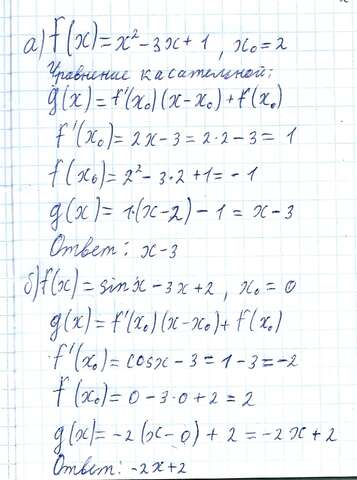 а) f(x) = x² - 3x + 1 , x₀ = 2
Уравнение касательной:
g(x) = f'(x₀)(x - x₀) + f(x₀)
f'(x₀) = 2x - 3 = 2·2 - 3 = 1
f(x₀) = 2² - 3·2 + 1 = -1
g(x) = 1·(x - 2) - 1 = x - 3
Ответ: x - 3
б) f(x) = sin x - 3x + 2 , x₀ = 0
g(x) = f'(x₀)(x - x₀) + f(x₀)
f'(x₀) = cosx - 3 = 1 - 3 = -2
f(x₀) = 0 - 3·0 + 2 = 2
g(x) = -2(x - 0) + 2 = -2x + 2
Ответ: -2x + 2